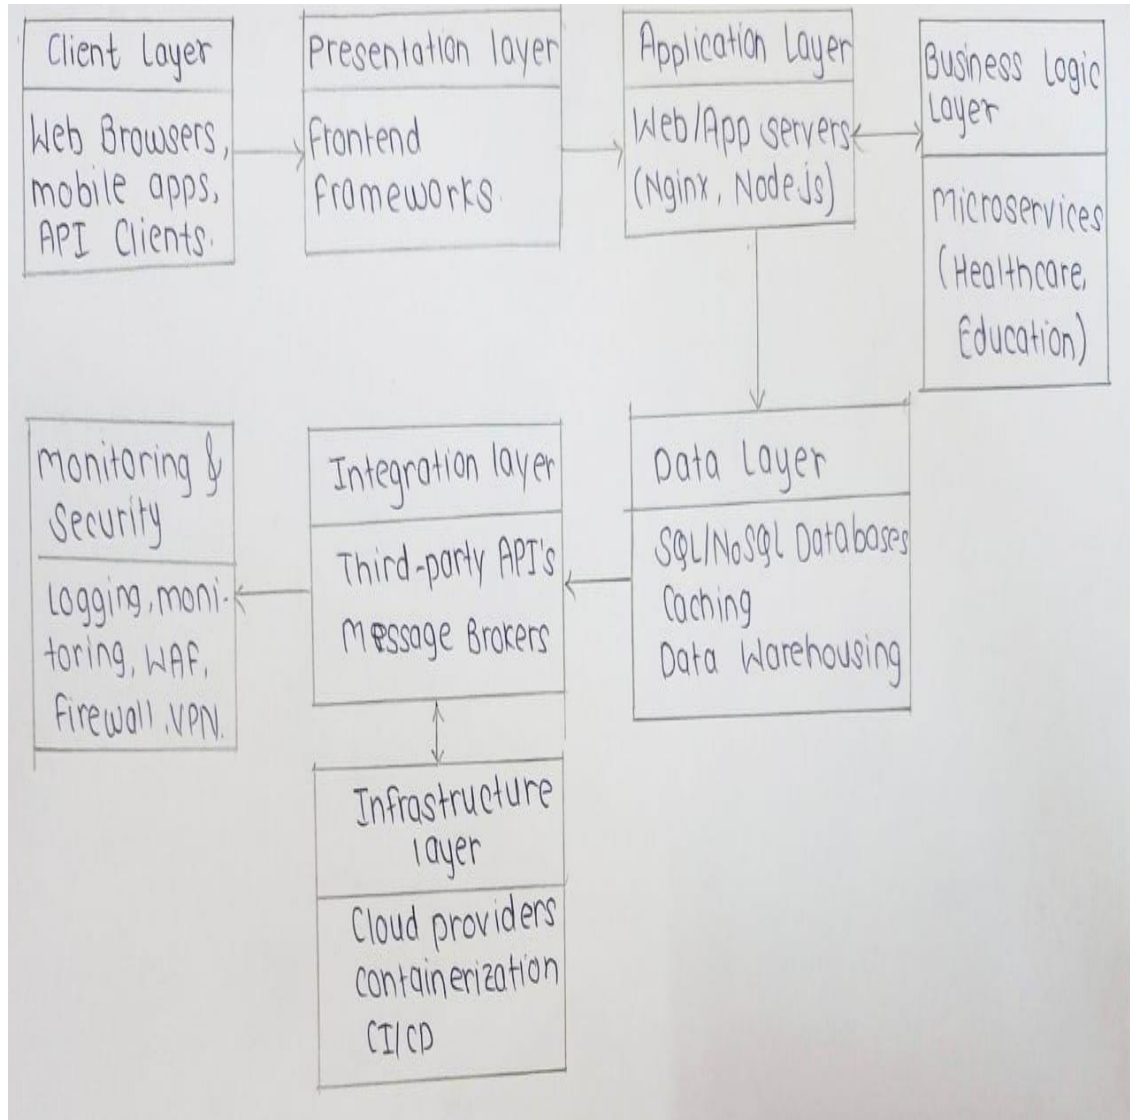 Client Layer
Web Browsers,
mobile apps,
API Clients.
Presentation layer
Frontend
frameworks.
Application Layer
Web/App servers
(Nginx, Node.js)
Business Logic
Layer
Microservices
(Healthcare,
Education)
Monitoring &
Security
Logging, moni-
toring, WAF,
Firewall, VPN.
Integration layer
Third-party API's
Message Brokers
Data Layer
SQL/NoSQL Databases
Caching
Data Warehousing
Infrastructure
layer
Cloud providers
containerization
CI/CD